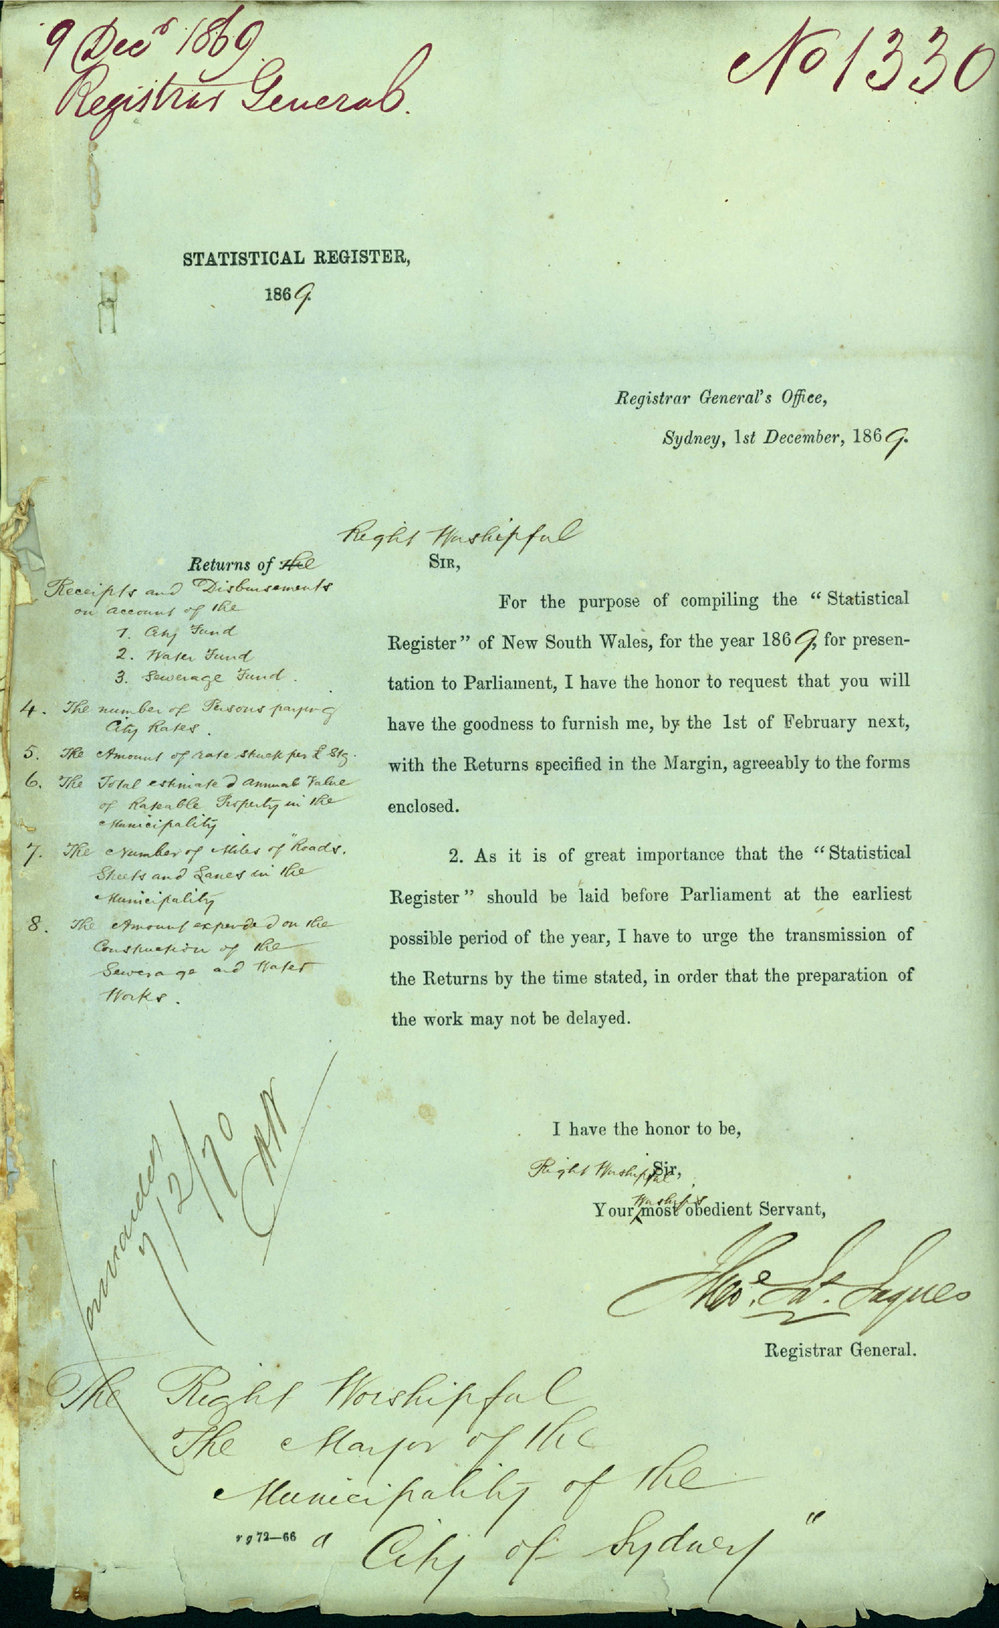 9 Decr 1869
Registrar General.
No 1330
STATISTICAL REGISTER,
1869.
Registrar General's Office,
Sydney, 1st December, 1869.
Returns of the
Receipts and Disbursements
on account of the
1. City Fund
2. Water Fund
3. Sewerage Fund.
4. The number of Persons paying
City Rates.
5. The Amount of rate struck per £ Stg.
6. The Total estimated annual Value
of Rateable Property in the
Municipality
7. The Number of Miles of Roads.
Streets and Lanes in the
Municipality
8. The Amount expended on the
Construction of the
Sewerage and Water
Works.
Right Worshipful
SIR,
For the purpose of compiling the "Statistical
Register" of New South Wales, for the year 1869, for presen-
tation to Parliament, I have the honor to request that you will
have the goodness to furnish me, by the 1st of February next,
with the Returns specified in the Margin, agreeably to the forms
enclosed.
2. As it is of great importance that the "Statistical
Register" should be laid before Parliament at the earliest
possible period of the year, I have to urge the transmission of
the Returns by the time stated, in order that the preparation of
the work may not be delayed.
I have the honor to be,
Right Worshipful Sir,
Your Worship's most obedient Servant,
Theo. St. Jaques
Registrar General.
Forwarded
7/2/70
The Right Worshipful
The Mayor of the
Municipality of the
"City of Sydney"
r g 72—66